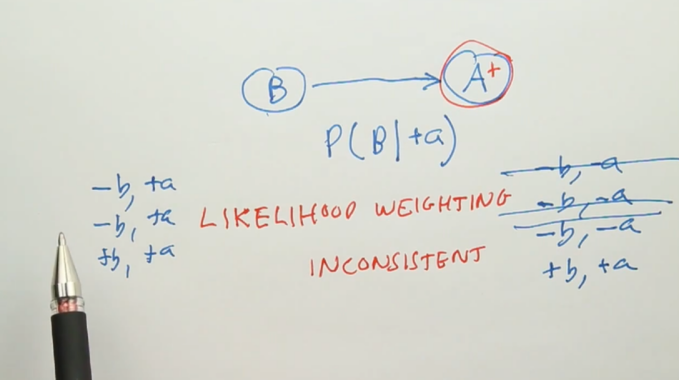 B A+
P(B|+a)
-b, +a
-b, +a
+b, +a
LIKELIHOOD WEIGHTING
INCONSISTENT
-b, -a
-b, -a
-b, -a
+b, +a